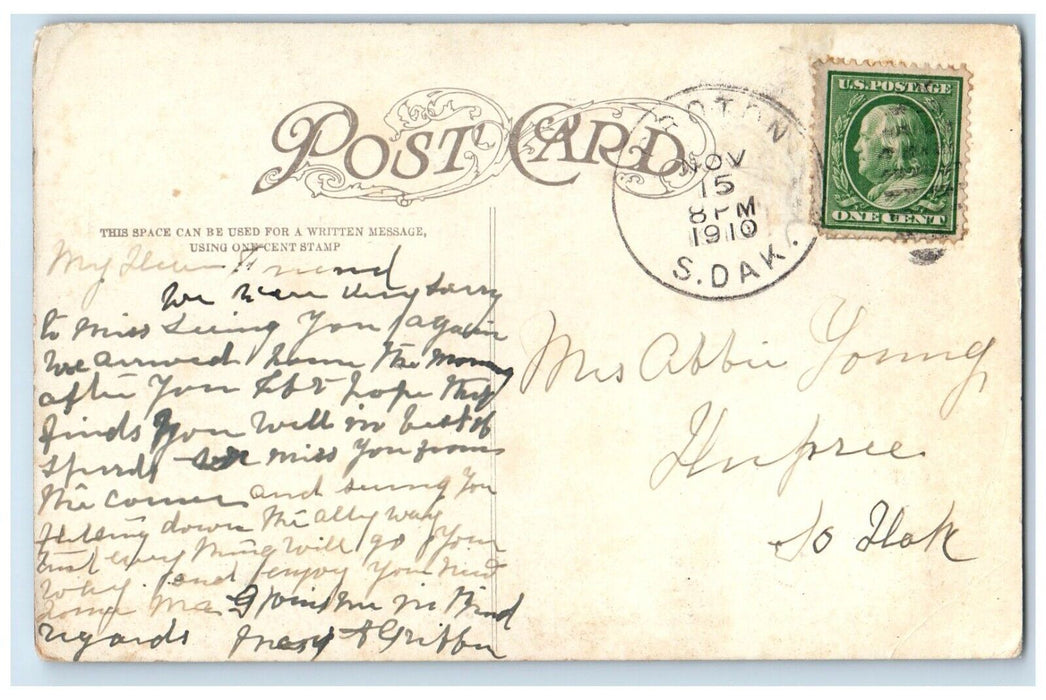 POST CARD
OTON
NOV
15
8 PM
1910
S. DAK.
U.S. POSTAGE
ONE CENT
THIS SPACE CAN BE USED FOR A WRITTEN MESSAGE,
USING ONE CENT STAMP
My Dear Friend
We were very sorry
to miss seeing you again
we arrived home the morning
after you left hope this
finds you well in best of
miss you from
the corner and seeing you
down the ally way
every thing will go your
way and enjoy your new
home
regards
Mrs Abbie Young
Dupree
So Dak